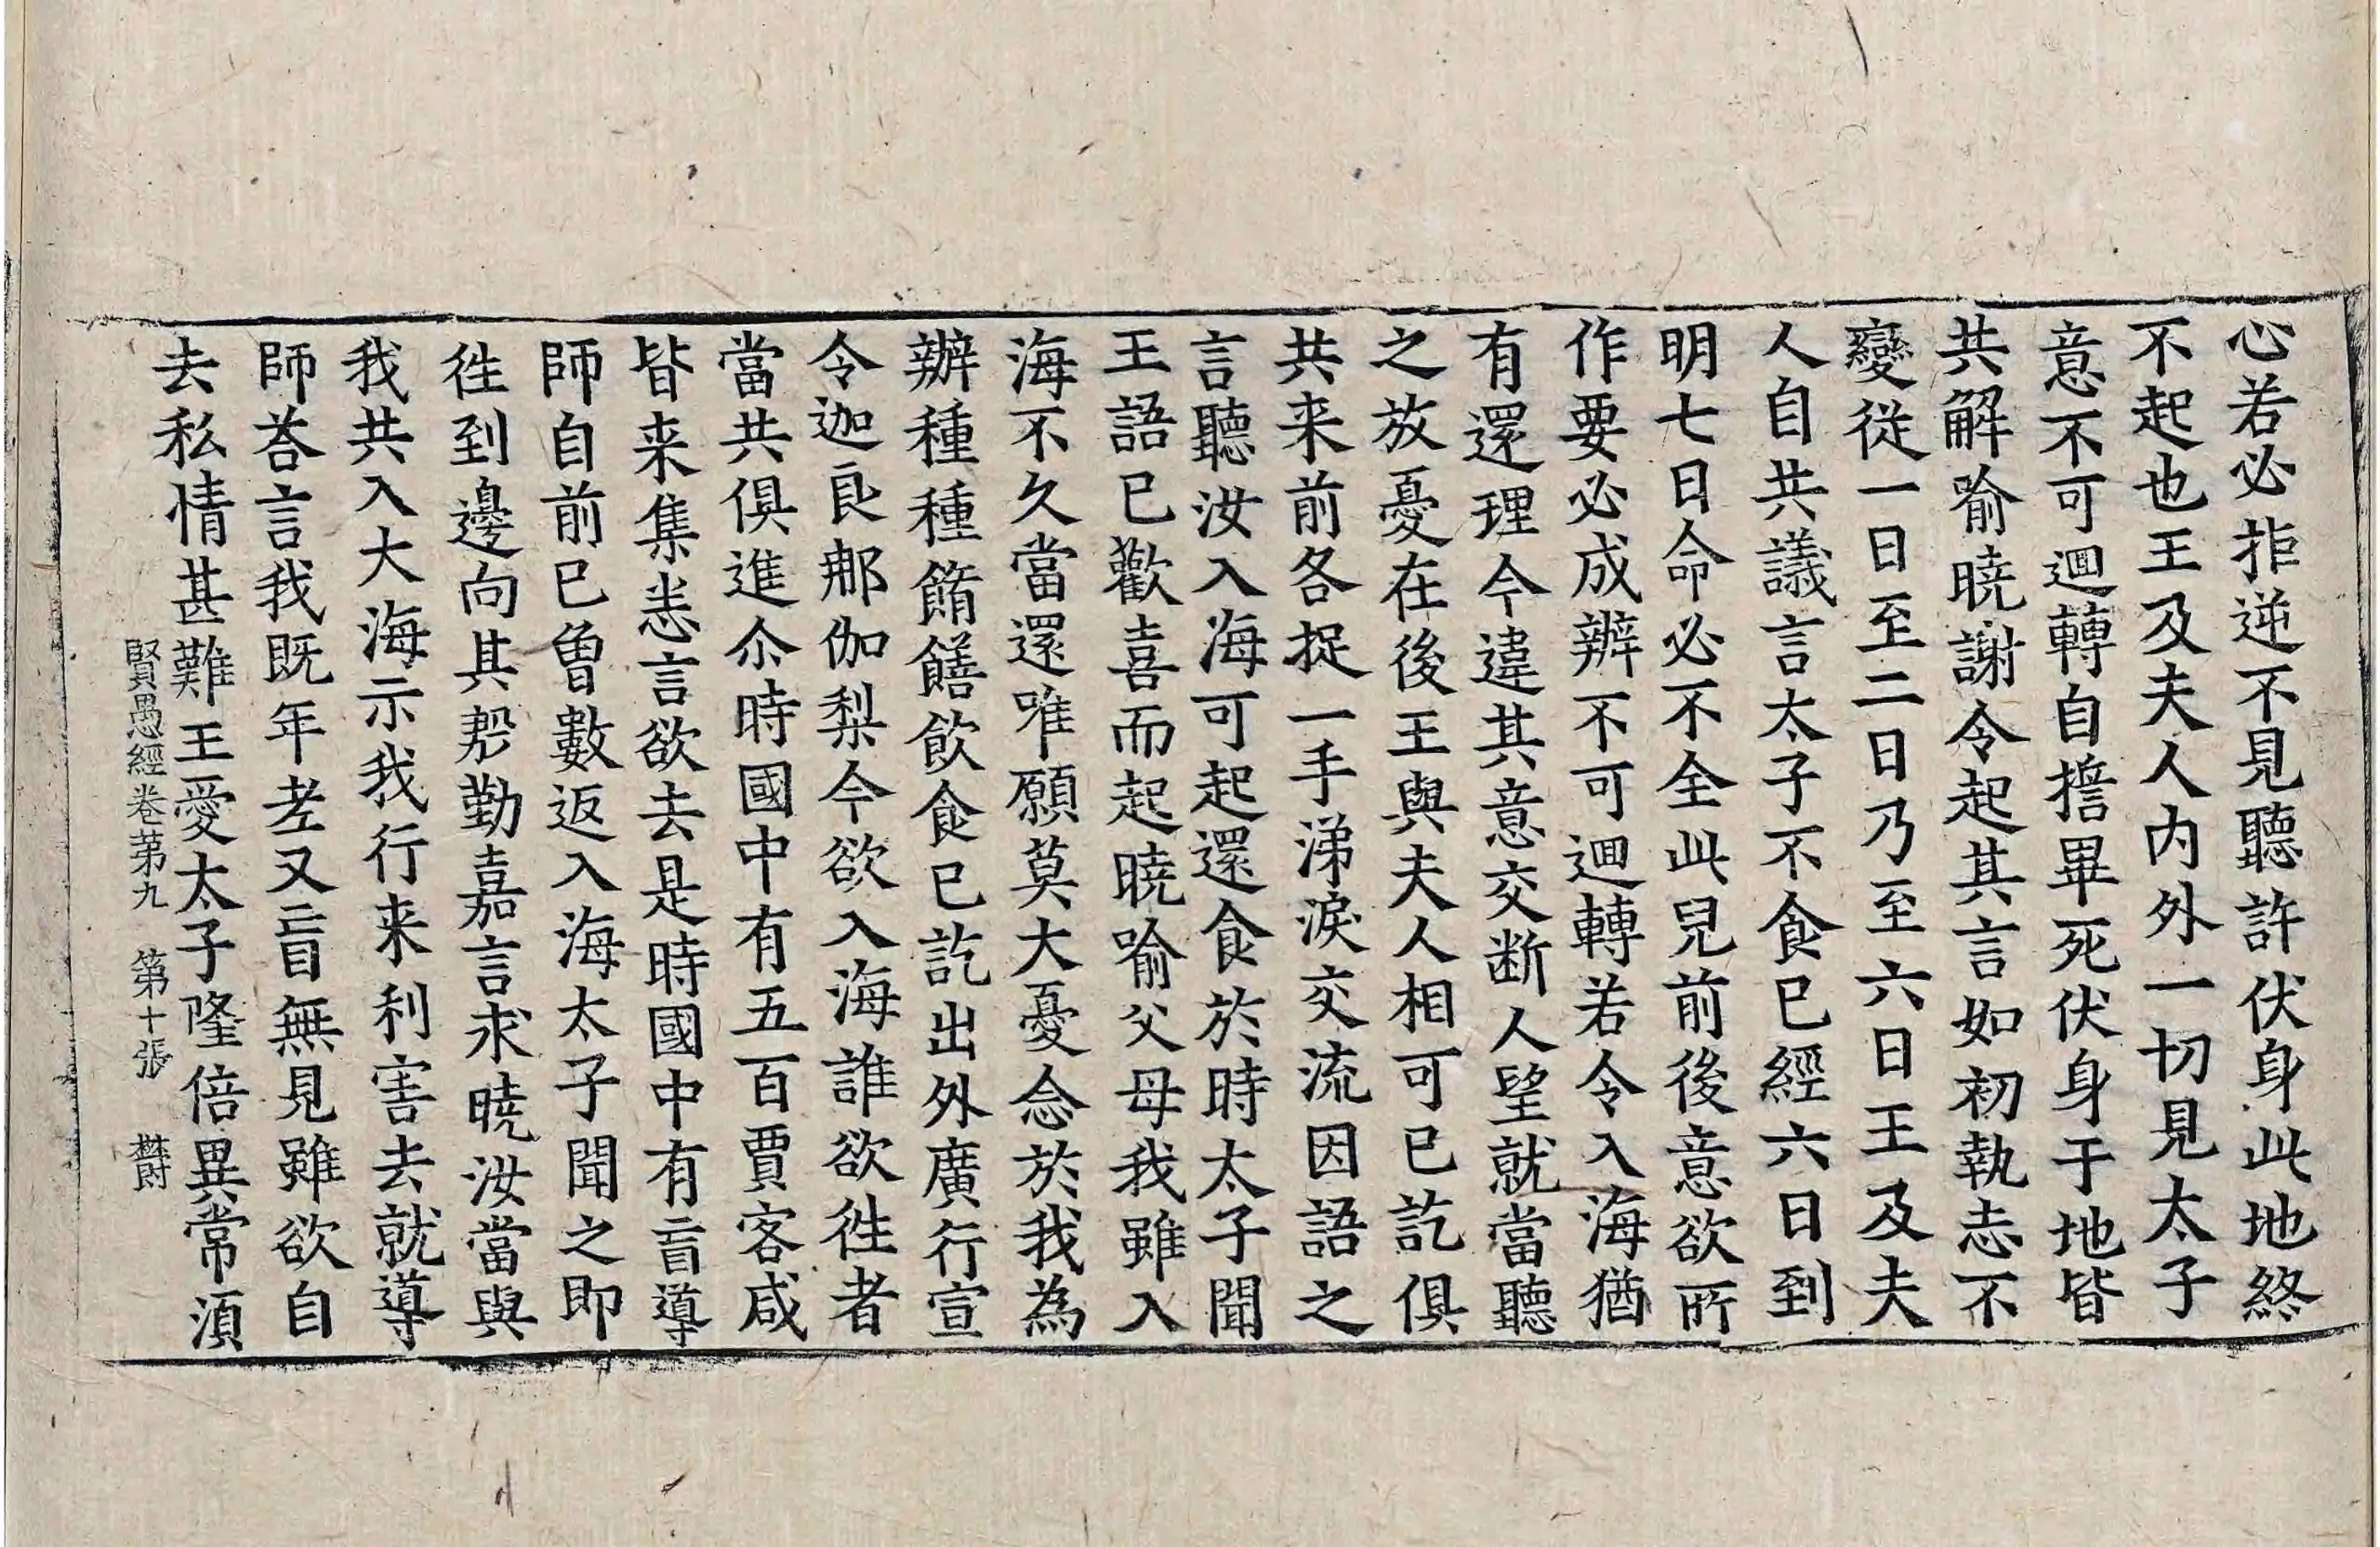 心若必拒逆不見聽許伏身此地終
不起也王及夫人内外一切見太子
意不可迴轉自擔畢死伏身于地皆
共解喻曉謝令起其言如初執志不
變從一日至二日乃至六日王及夫
人自共議言太子不食已經六日到
明七日命必不全此兒前後意欲所
作要必成辦不可迴轉若令入海猶
有還理今違其意交斷人望就當聽
之放憂在後王與夫人相可已訖俱
共来前各捉一手涕淚交流因語之
言聽汝入海可起還食於時太子聞
王語已歡喜而起曉喻父母我雖入
海不久當還唯願莫大憂念於我為
辦種種餚饍飲食已訖出外廣行宣
令迦良那伽梨今欲入海誰欲徃者
當共俱進尒時國中有五百賈客咸
皆来集悉言欲去是時國中有盲導
師自前已曾數返入海太子聞之即
徃到邊向其慇勤嘉言求曉汝當與
我共入大海示我行来利害去就導
師荅言我既年老又盲無見雖欲自
去私情甚難王愛太子隆倍異常須
賢愚經卷苐九　第十張　欝